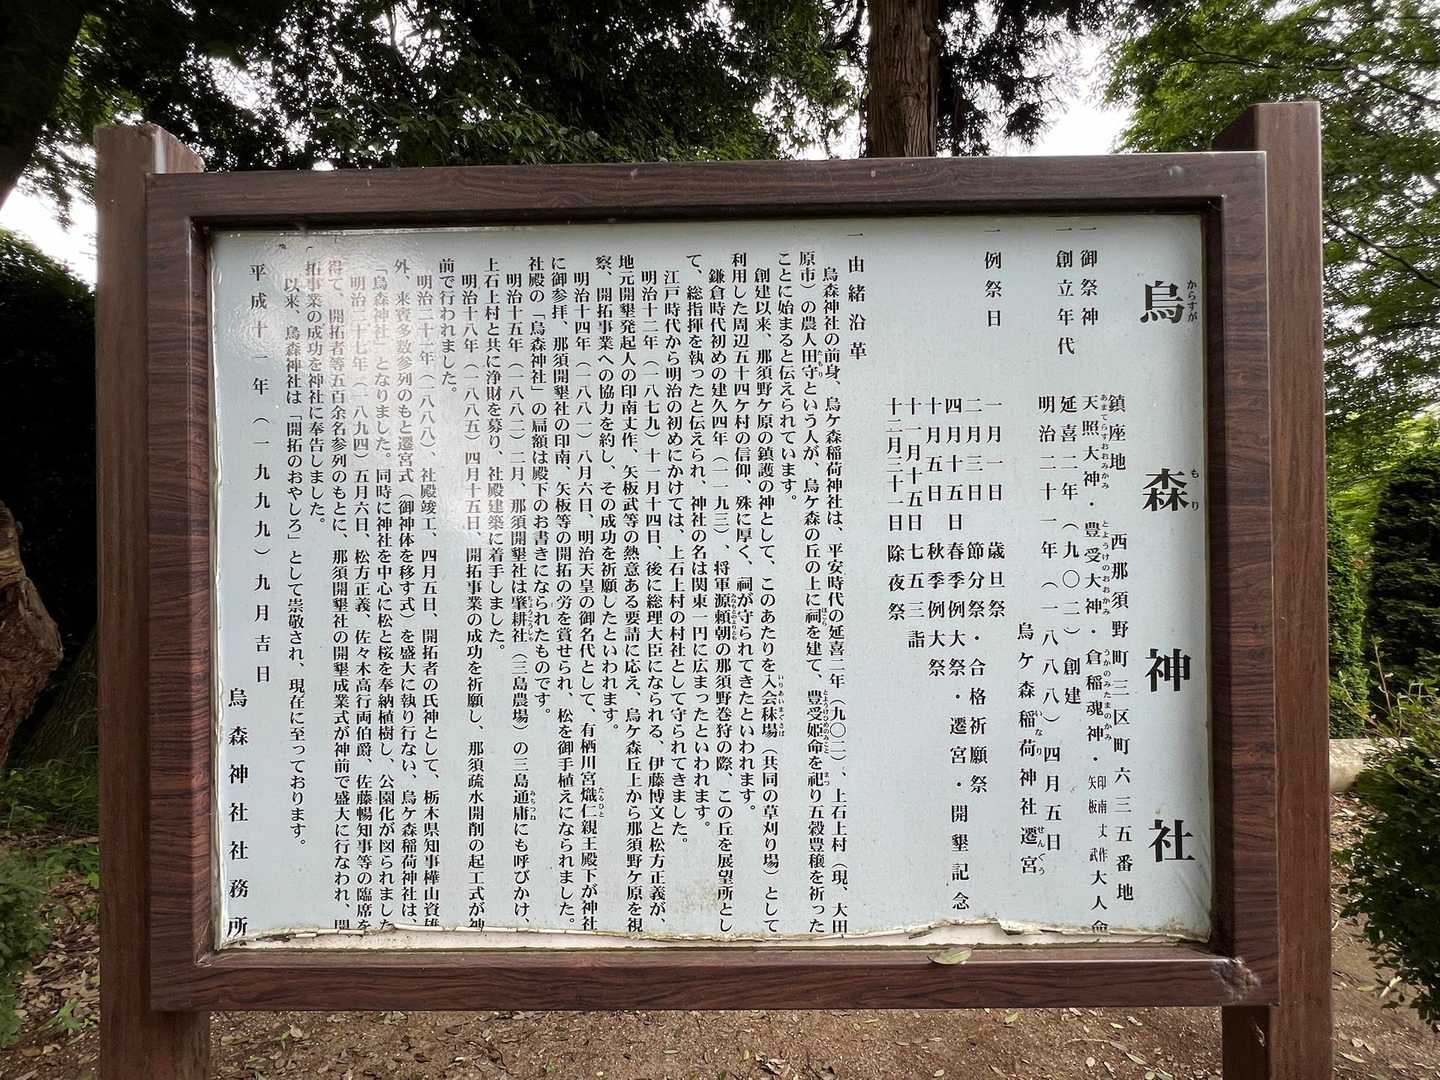 烏森神社
からすがもり
鎮座地 西那須野町三区町六三五番地
一御祭神 天照大神・豊受大神・倉稲魂神・印南丈作 矢板武 大人命
あまてらすおおみかみ とようけのおおかみ うかのみたまのかみ
一創立年代 延喜二年（九〇二）創建 烏ケ森稲荷神社遷宮
いなり せんぐう
明治二十一年（一八八八）四月五日
一例祭日 一月一日 歳旦祭
二月三日 節分祭・合格祈願祭
四月十五日 春季例大祭・遷宮・開墾記念
十月五日 秋季例大祭
十一月十五日 七五三詣
十二月三十一日 除夜祭
一由緒沿革
烏森神社の前身、烏ケ森稲荷神社は、平安時代の延喜二年（九〇二）、上石上村（現、大田
原市）の農人田守という人が、烏ケ森の丘の上に祠を建て、豊受姫命を祀り五穀豊穣を祈った
たもり ほこら とようけひめのみこと まつ
ことに始まると伝えられています。
創建以来、那須野ケ原の鎮護の神として、このあたりを入会秣場（共同の草刈り場）として
いりあいまぐさば
利用した周辺五十四ケ村の信仰、殊に厚く、祠が守られてきたといわれます。
鎌倉時代初めの建久四年（一一九三）、将軍源頼朝の那須野巻狩の際、この丘を展望所とし
みなもとのよりとも
て、総指揮を執ったと伝えられ、神社の名は関東一円に広まったといわれます。
江戸時代から明治の初めにかけては、上石上村の村社として守られてきました。
明治十二年（一八七九）十一月十四日、後に総理大臣になられる、伊藤博文と松方正義が、
地元開墾発起人の印南丈作、矢板武等の熱意ある要請に応え、烏ケ森丘上から那須野ケ原を視
察、開拓事業への協力を約し、その成功を祈願したといわれます。
明治十四年（一八八一）八月六日、明治天皇の御名代として、有栖川宮熾仁親王殿下が神社
たるひと
に御参拝、那須開墾社の印南、矢板等の開拓の労を賞せられ、松を御手植えになられました。
社殿の「烏森神社」の扁額は殿下のお書きになられたものです。
明治十五年（一八八二）二月、那須開墾社は肇耕社（三島農場）の三島通庸にも呼びかけ、
ちょうこうしゃ みちつね
上石上村と共に浄財を募り、社殿建築に着手しました。
明治十八年（一八八五）四月十五日、開拓事業の成功を祈願し、那須疏水開削の起工式が神
前で行われました。
明治二十一年（一八八八）、社殿竣工、四月五日、開拓者の氏神として、栃木県知事樺山資雄
外、来賓多数参列のもと遷宮式（御神体を移す式）を盛大に執り行ない、烏ケ森稲荷神社は、
「烏森神社」となりました。同時に神社を中心に松と桜を奉納植樹し、公園化が図られました
明治二十七年（一八九四）五月六日、松方正義、佐々木高行両伯爵、佐藤暢知事等の臨席を
得て、開拓者等五百余名参列のもとに、那須開墾社の開墾成業式が神前で盛大に行なわれ、開
拓事業の成功を神社に奉告しました。
以来、烏森神社は「開拓のおやしろ」として崇敬され、現在に至っております。
平成十一年（一九九九）九月吉日
烏森神社社務所